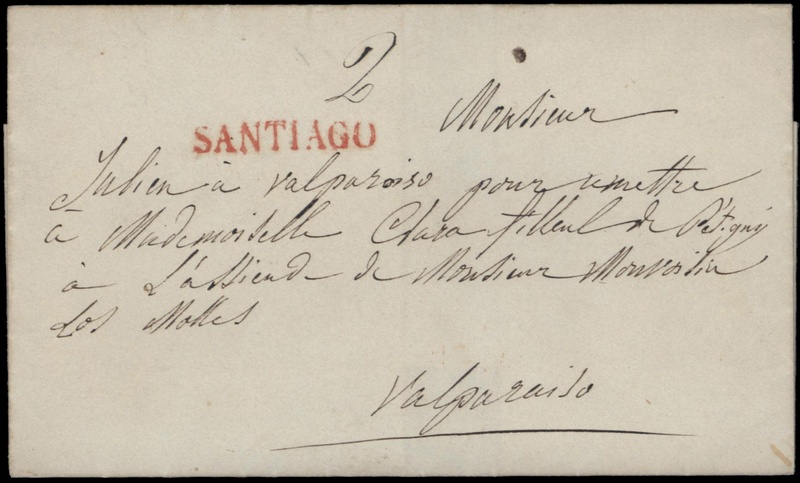 2
SANTIAGO
Monsieur
Julien à valparaiso pour remettre
à Mademoiselle Clara filleul de Pétigny
à L'assiend de Monsieur Monvoisin
Los Molles
Valparaiso